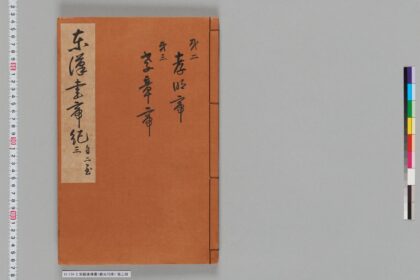 弐二
孝明帝
弐三
孝章帝
东漢書帝紀 自二至三